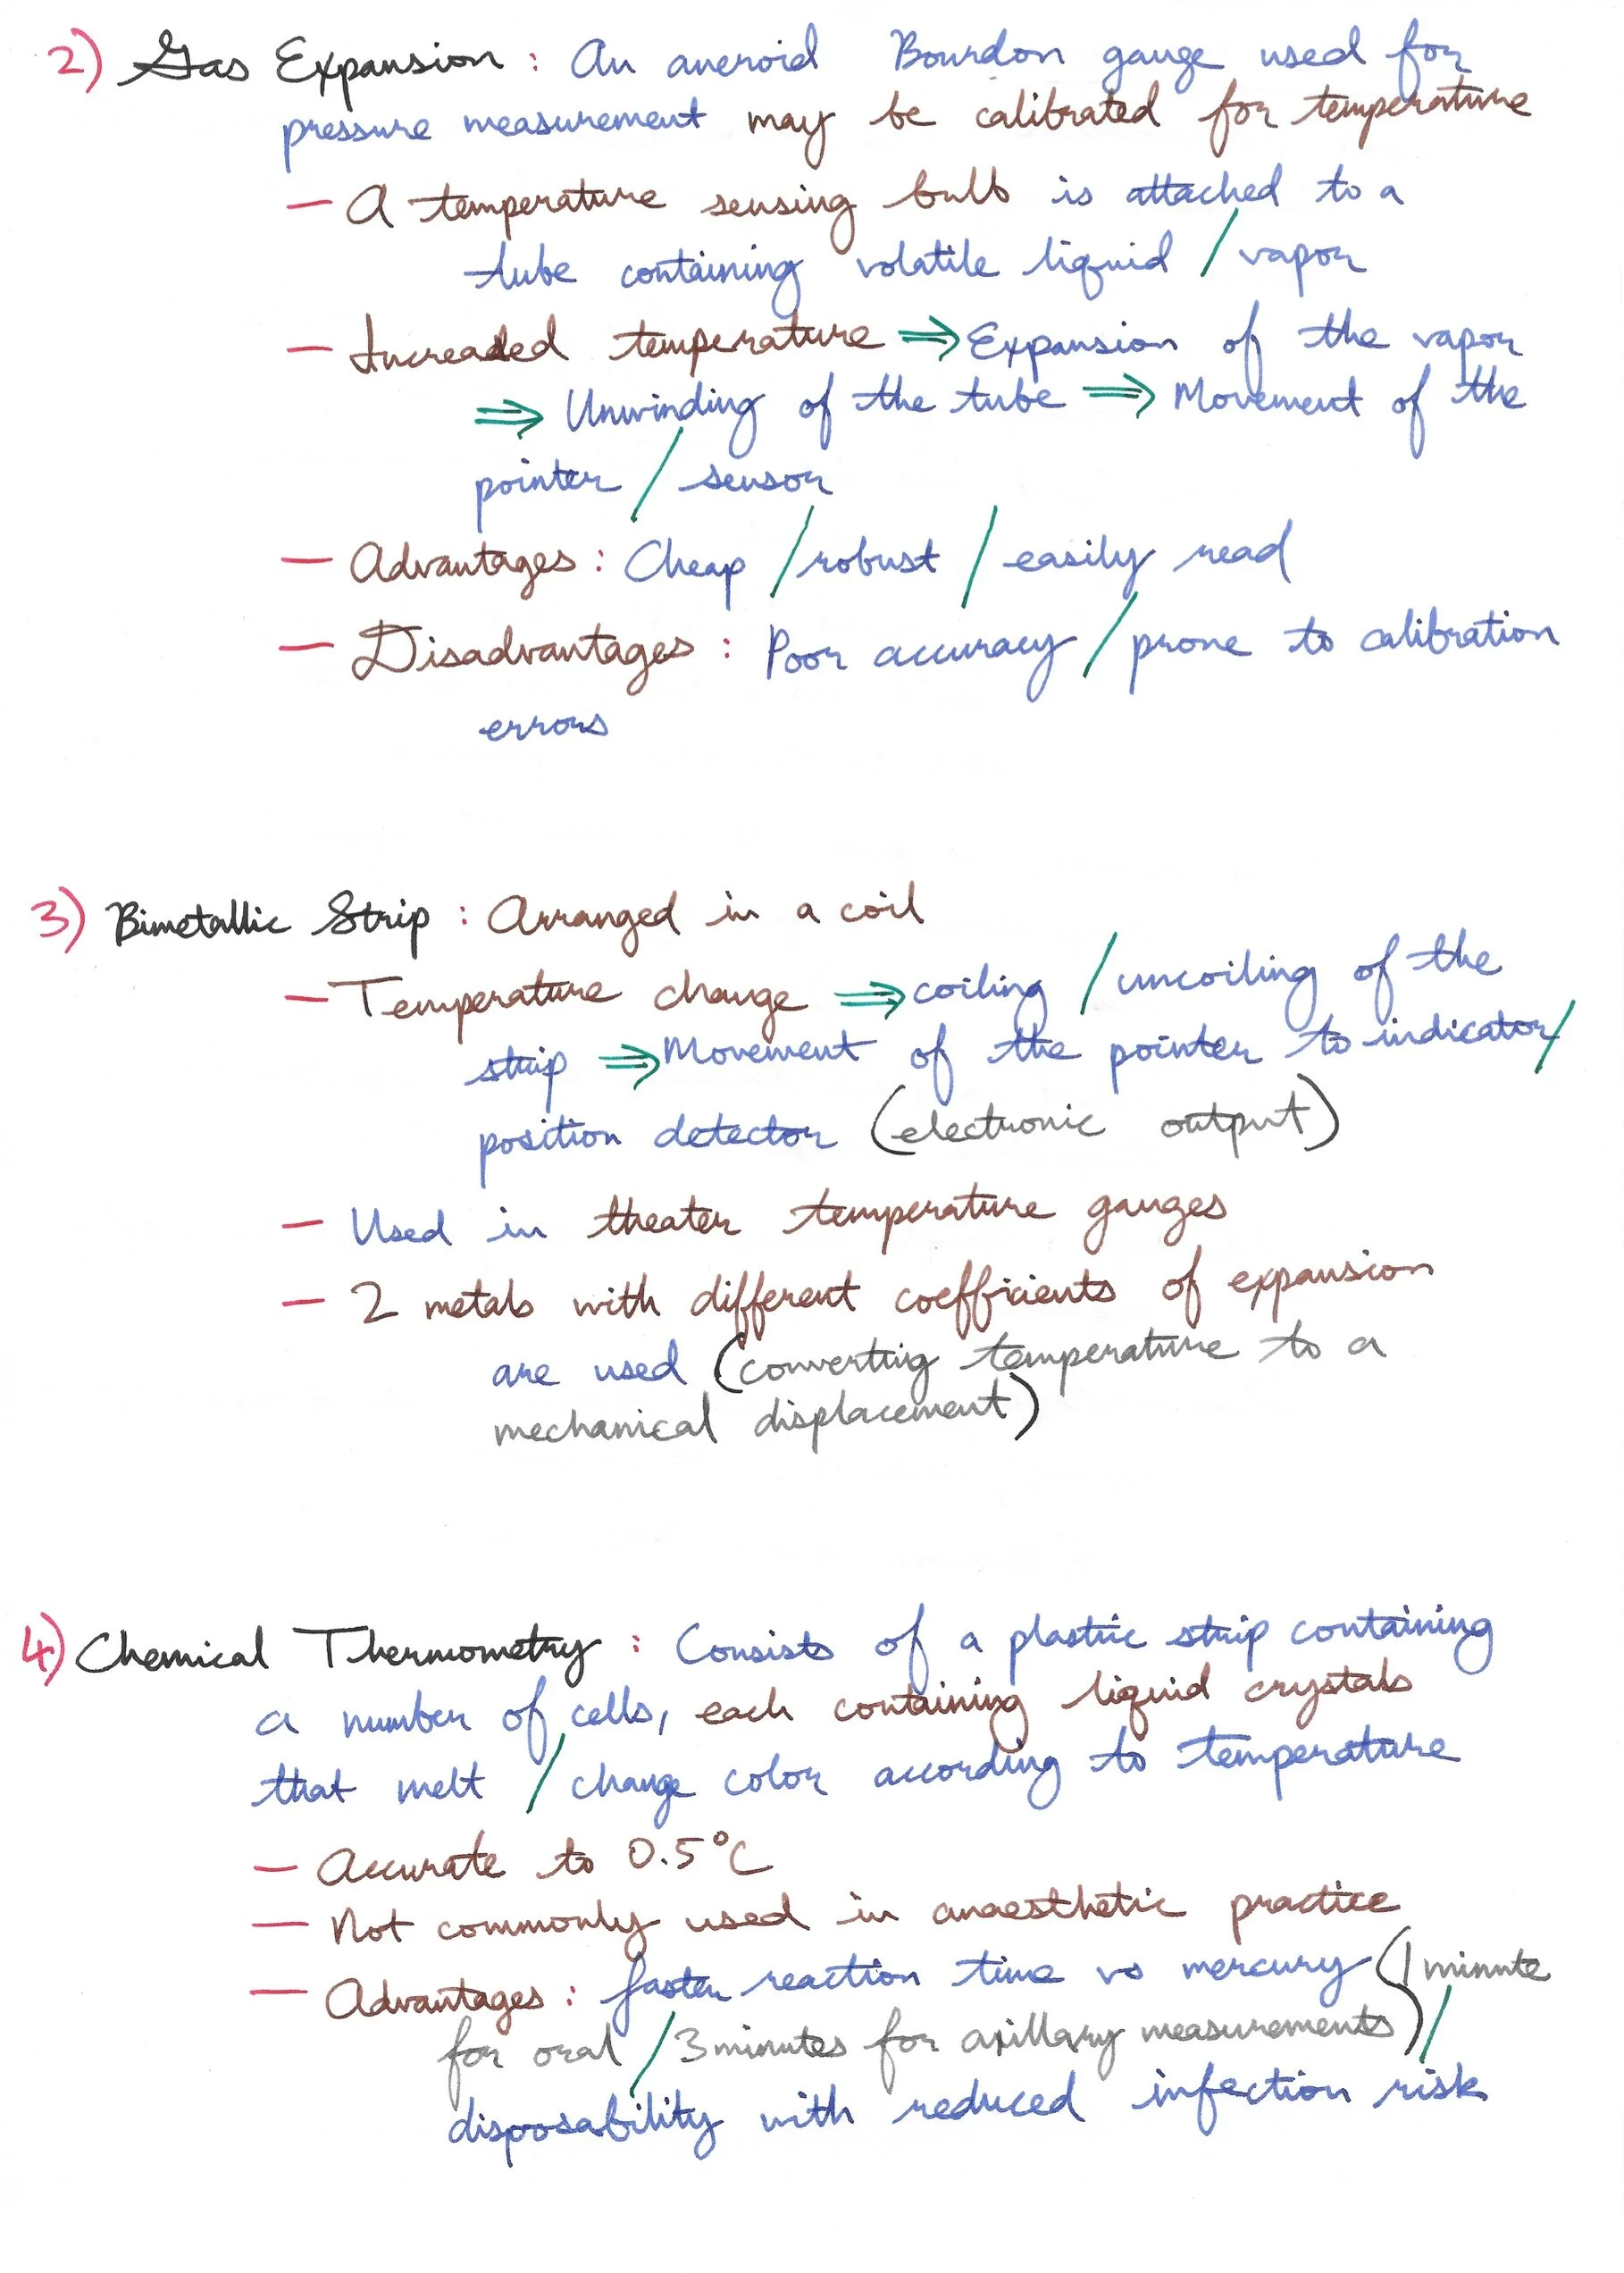 2) Gas Expansion : An aneroid Bourdon gauge used for
pressure measurement may be calibrated for temperature
— A temperature sensing bulb is attached to a
tube containing volatile liquid / vapor
— Increased temperature ⇒ Expansion of the vapor
⇒ Unwinding of the tube ⇒ Movement of the
pointer / sensor
— Advantages : Cheap / robust / easily read
— Disadvantages : Poor accuracy / prone to calibration
errors
3) Bimetallic Strip : Arranged in a coil
— Temperature change ⇒ coiling / uncoiling of the
strip ⇒ Movement of the pointer to indicator /
position detector (electronic output)
— Used in theater temperature gauges
— 2 metals with different coefficients of expansion
are used (converting temperature to a
mechanical displacement)
4) Chemical Thermometry : Consists of a plastic strip containing
a number of cells, each containing liquid crystals
that melt / change color according to temperature
— Accurate to 0.5°C
— Not commonly used in anaesthetic practice
— Advantages : faster reaction time vs mercury (1 minute
for oral / 3 minutes for axillary measurements) /
disposability with reduced infection risk